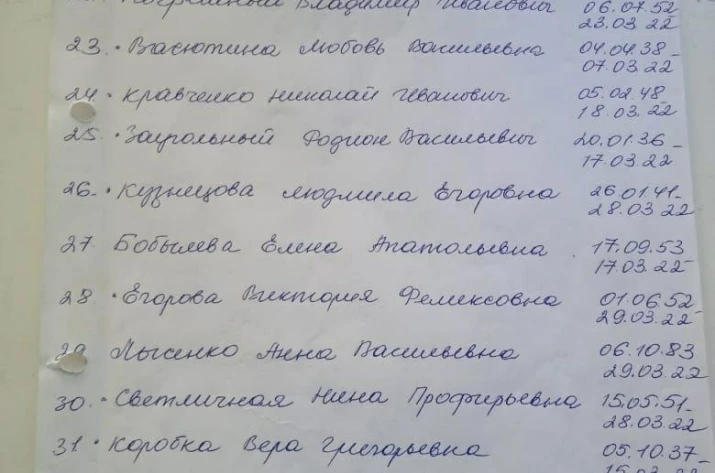 Владимир Иванович 06.07.52
23.03.22
23. Васютина Любовь Васильевна 04.04.38-
07.03.22
24. Кравченко Николай Иванович 05.02.48-
18.03.22
25. Заугольный Родион Васильевич 20.01.36-
17.03.22
26. Кузнецова Людмила Егоровна 26.01.41-
28.03.22
27. Бобылева Елена Анатольевна 17.09.53
17.03.22
28. Егорова Виктория Феликсовна 01.06.52
29.03.22
29. Лысенко Анна Васильевна 06.10.83
29.03.22
30. Светличная Нина Профирьевна 15.05.51-
28.03.22
31. Коробка Вера Григорьевна 05.10.37-